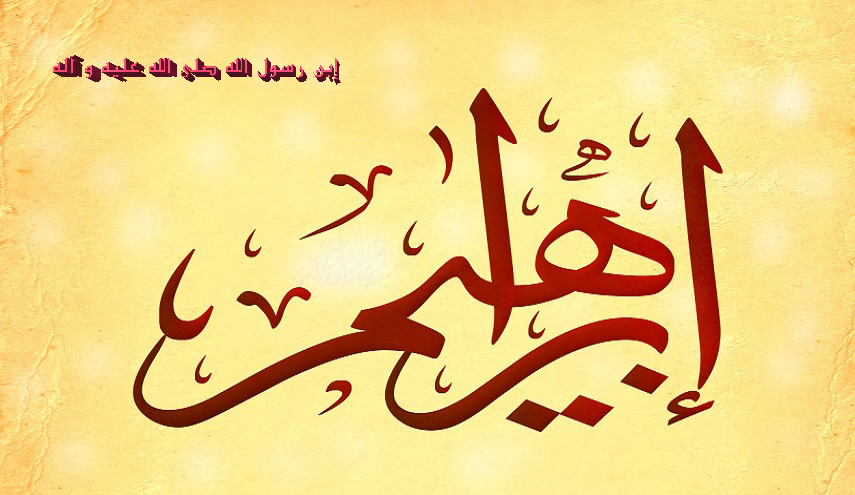 إبن رسول الله صلى الله عليه و آله
إبراهيم